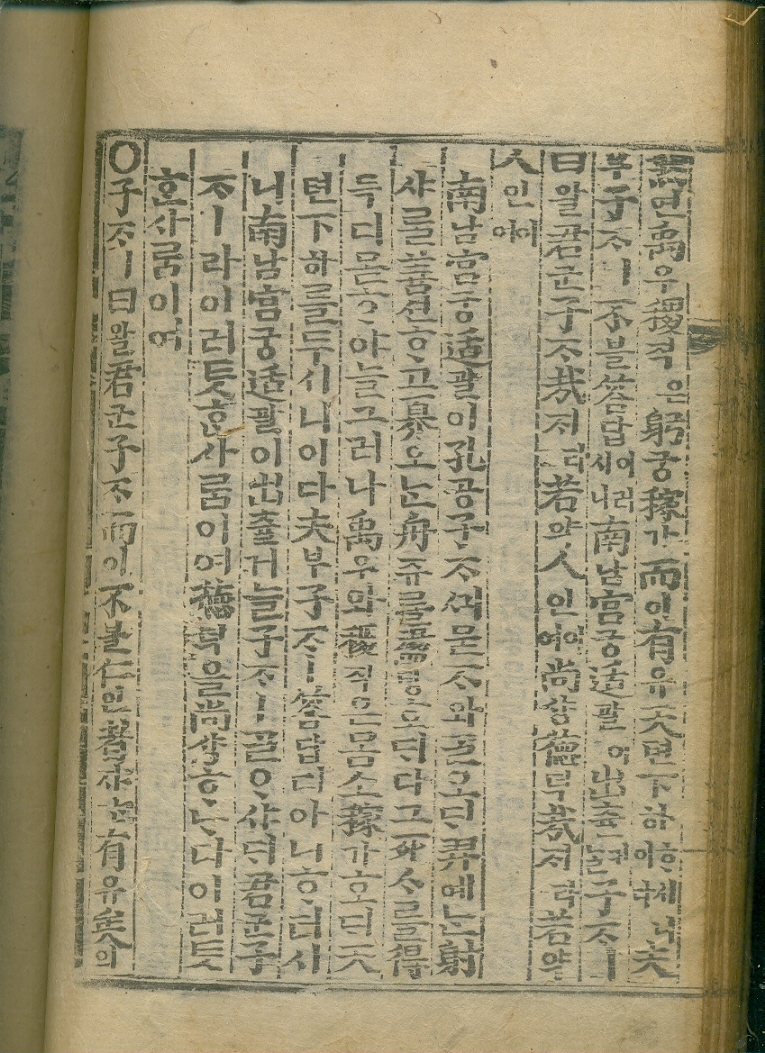 然연禹우稷직은躬궁稼가而이有유天텬下하夫
부子ᄌᆞㅣ不블答답南남宮궁适괄이出츌子ᄌᆞㅣ
曰왈君군子ᄌᆞ哉ᄌᆡ라若약人인이여尙샹德덕哉ᄌᆡ라若약
人인이여
南남宮궁适괄이孔공子ᄌᆞᄭᅴ묻ᄌᆞ와ᄀᆞᆯ오ᄃᆡ羿예ᄂᆞᆫ射
샤를善션ᄒᆞ고奡오ᄂᆞᆫ舟쥬를盪탕호ᄃᆡ다그死ᄉᆞ를得
득디몯ᄒᆞ야늘그러나禹우와稷직은몸소稼가호ᄃᆡ天
텬下하를두시니이다夫부子ᄌᆞㅣ答답디아니ᄒᆞ더시
니南남宮궁适괄이出츌거늘子ᄌᆞㅣᄀᆞᆯᄋᆞ샤ᄃᆡ君군子
ᄌᆞㅣ라이러ᄐᆞᆺᄒᆞᆫ사ᄅᆞᆷ이여德덕을尙샹ᄒᆞᄂᆞᆫ다이러ᄐᆞᆺ
ᄒᆞᆫ사ᄅᆞᆷ이여
〇子ᄌᆞㅣ曰왈君군子ᄌᆞ而이不블仁인者쟈ᄂᆞᆫ有유矣의